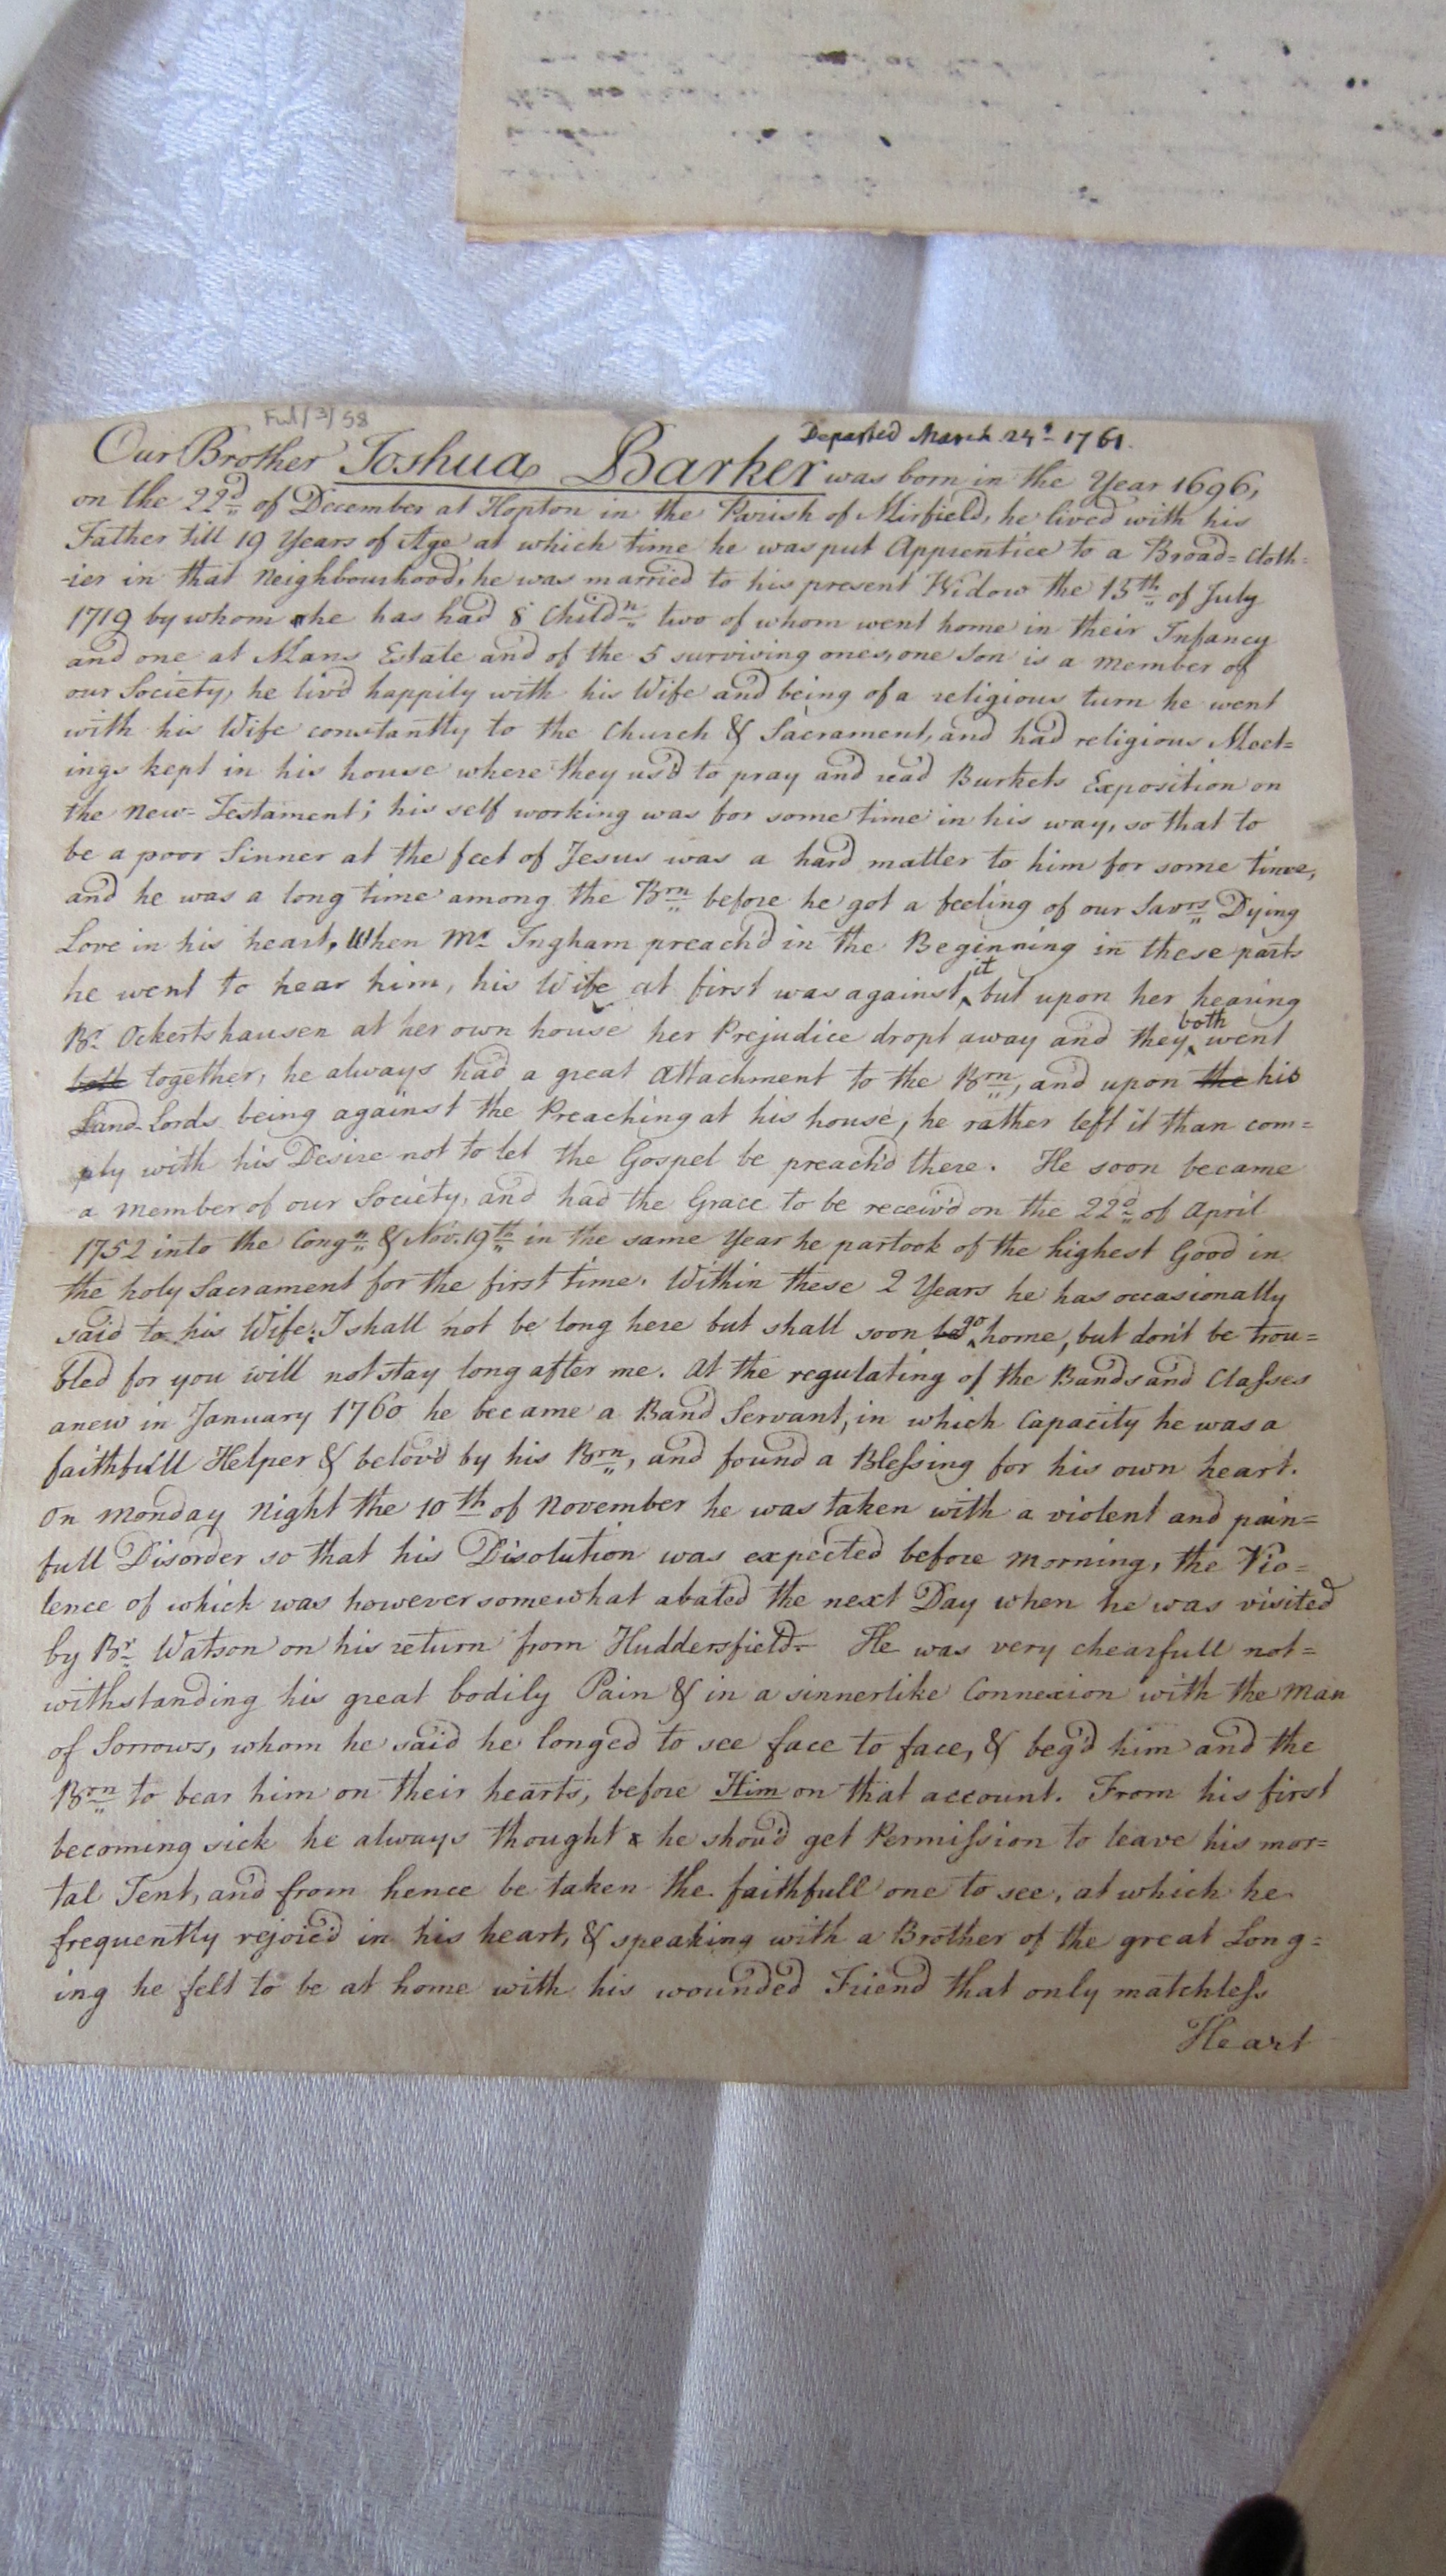 Ful/3/58
Departed March 24th 1761.
Our Brother Joshua Barker was born in the Year 1696,
on the 22d of December at Hopton in the Parish of Mirfield, he lived with his
Father till 19 Years of Age at which time he was put Apprentice to a Broad=Cloth=
-ier in that Neighbourhood, he was married to his present Widow the 15th of July
1719 by whom he has had 8 Childn two of whom went home in their Infancy
and one at Mans Estate and of the 5 surviving ones, one Son is a Member of
our Society, he liv'd happily with his Wife and being of a religious turn he went
with his Wife constantly to the Church & Sacrament, and had religious Meet=
ings kept in his house where they us'd to pray and read Burkets Exposition on
the New=Testament; his self working was for some time in his way, so that to
be a poor Sinner at the feet of Jesus was a hard matter to him for some time,
and he was a long time among the Brn before he got a feeling of our Savrs Dying
Love in his heart, When Mr Ingham preach'd in the Beginning in these parts
he went to hear him, his Wife at first was against it but upon her hearing
Br Ockertshausen at her own house her Prejudice dropt away and they both went
both together, he always had a great Attachment to the Brn, and upon the his
Land-Lords being against the Preaching at his house, he rather left it than com=
ply with his Desire not to let the Gospel be preach'd there. He soon became
a Member of our Society, and had the Grace to be receiv'd on the 22d of April
1752 into the Congn & Nov. 19th in the same Year he partook of the highest Good in
the holy Sacrament for the first time. Within these 2 Years he has occasionally
said to his Wife: I shall not be long here but shall soon be go home, but don't be trou=
bled for you will not stay long after me. At the regulating of the Bands and Classes
anew in January 1760 he became a Band Servant, in which Capacity he was a
faithfull Helper & belov'd by his Brn, and found a Blessing for his own heart.
On Monday Night the 10th of November he was taken with a violent and pain=
full Disorder so that his Disolution was expected before Morning, the Vio=
lence of which was however somewhat abated the next Day when he was visited
by Br Watson on his return from Huddersfield. He was very chearfull not=
withstanding his great bodily Pain & in a sinnerlike Connexion with the Man
of Sorrows, whom he said he longed to see face to face, & beg'd him and the
Brn to bear him on their hearts, before Him on that account. From his first
becoming sick he always thought he shou'd get Permission to leave his mor=
tal Tent, and from hence be taken the faithfull one to see, at which he
frequently rejoic'd in his heart, & speaking with a Brother of the great Long=
ing he felt to be at home with his wounded Friend that only matchless
Heart